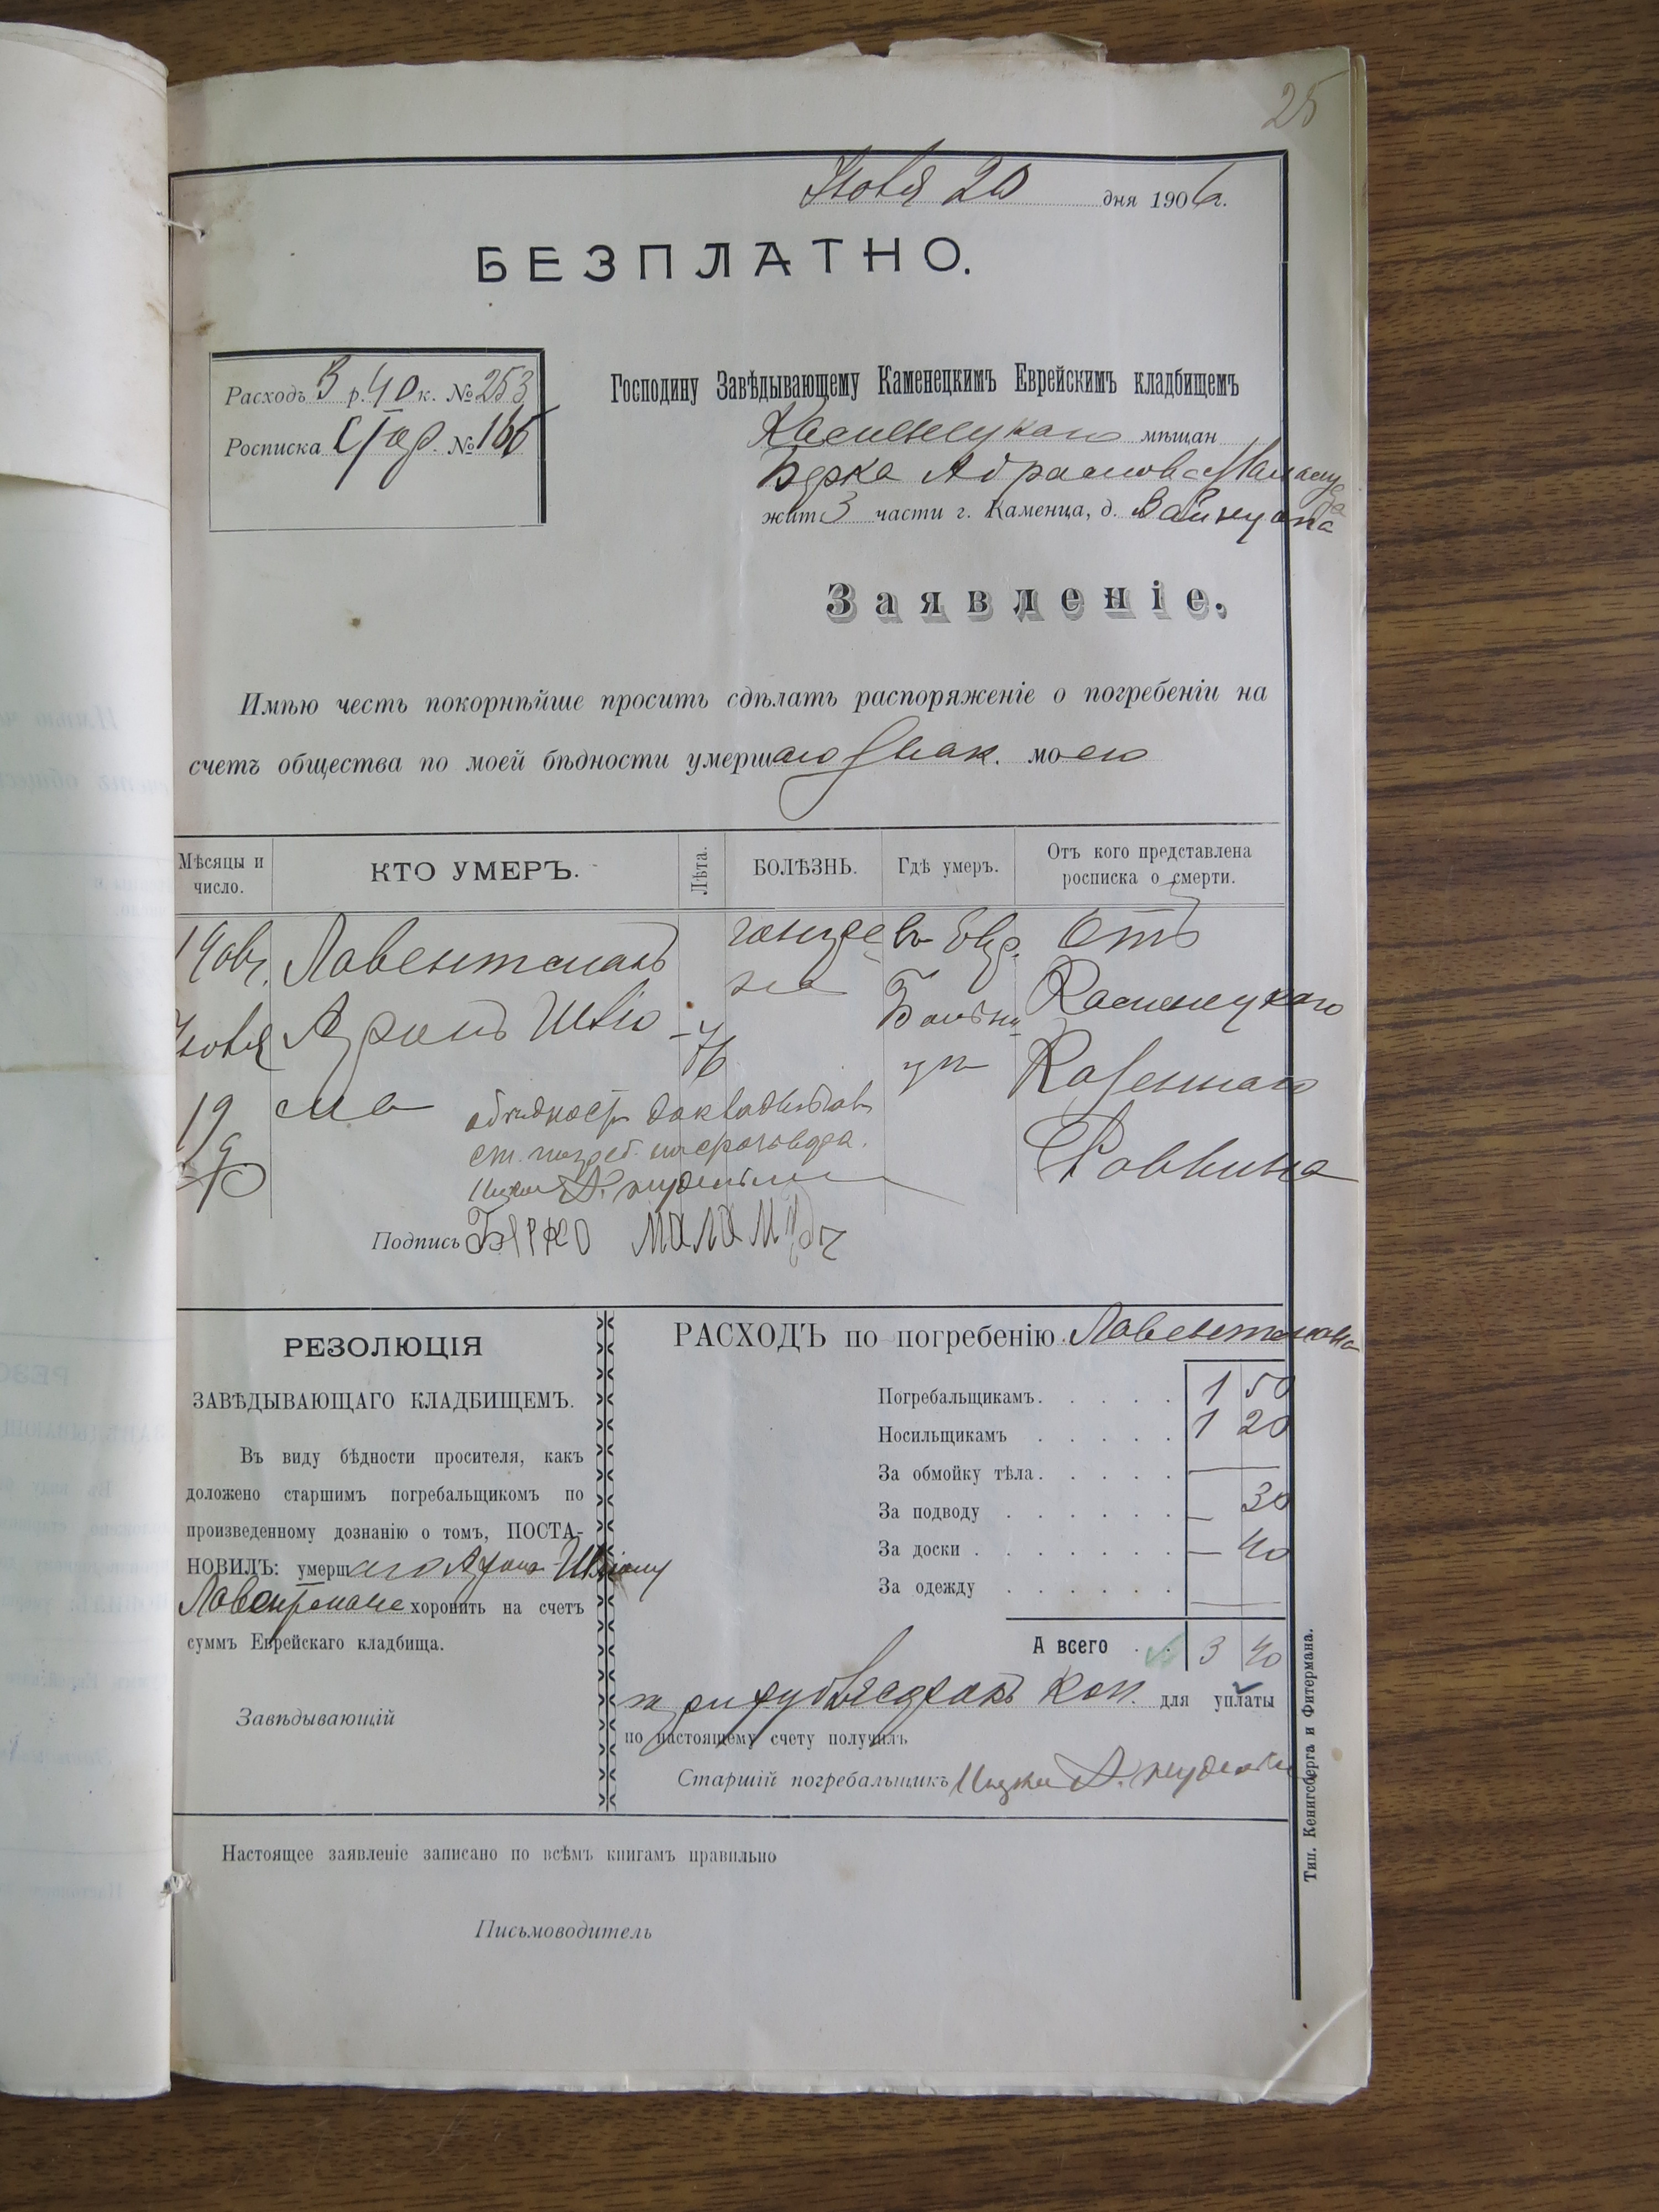 25
Ноября 20 дня 1906 г.
БЕЗПЛАТНО.
Расходъ 3 р. 40 к. № 253
Росписка № 166
Господину Завѣдывающему Каменецкимъ Еврейскимъ кладбищемъ
Каменецкаго мѣщан
Берка Абрамова Маламуда
жит 3 части г. Каменца, д. Вайнцана
Заявленіе.
Имѣю честь покорнѣйше просить сдѣлать распоряженіе о погребеніи на
счетъ общества по моей бѣдности умершаго знак. моего
Мѣсяцы и число.
КТО УМЕРЪ.
Лѣта.
БОЛѢЗНЬ.
Гдѣ умеръ.
Отъ кого представлена росписка о смерти.
Лавентманъ гангре въ Евр. Отъ
на Больни Каменецкаго
Ноября Аронъ Шлю 76 цѣ Казеннаго
19 ма Раввина
Подпись Берко Маламудъ
РЕЗОЛЮЦІЯ
ЗАВѢДЫВАЮЩАГО КЛАДБИЩЕМЪ.
Въ виду бѣдности просителя, какъ
доложено старшимъ погребальщикомъ по
произведенному дознанію о томъ, ПОСТА-
НОВИЛЪ: умершаго Арона Шлiому
Лавентмана хоронить на счетъ
суммъ Еврейскаго кладбища.
Завѣдывающій
РАСХОДЪ по погребенію Лавентмана
Погребальщикамъ. . . . . 1 50
Носильщикамъ . . . . . 1 20
За обмойку тѣла. . . . . —
За подводу . . . . . . — 30
За доски . . . . . . . — 40
За одежду . . . . . . —
А всего . . 3 40
три руб сорокъ коп. для уплаты
по настоящему счету получилъ
Старшій погребальщикъ
Настоящее заявленіе записано по всѣмъ книгамъ правильно
Письмоводитель
Тип. Кенигсберга и Фитермана.